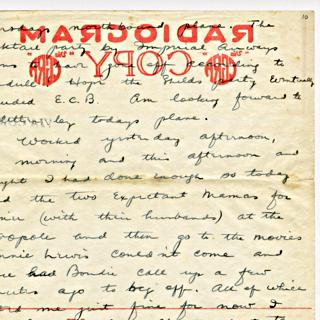 10
RADIOGRAM
"VIA RCA" COPY "VIA RCA"
northbound plane. The
cktail party by Imperial Airways
to have gone off according to
dule. Hope the Childs party eventually
luded E.C.B. Am looking forward to
letter by todays plane.
Worked yesterday afternoon,
morning and this afternoon and
ght I had done enough so today
d the two Expectant Mamas for
nner (with their husbands) at the
opole and then go to the movies
nnie Lewis couldn't come and
had Bondie call up a few
utes ago to beg off. All of which
me just fine for now I